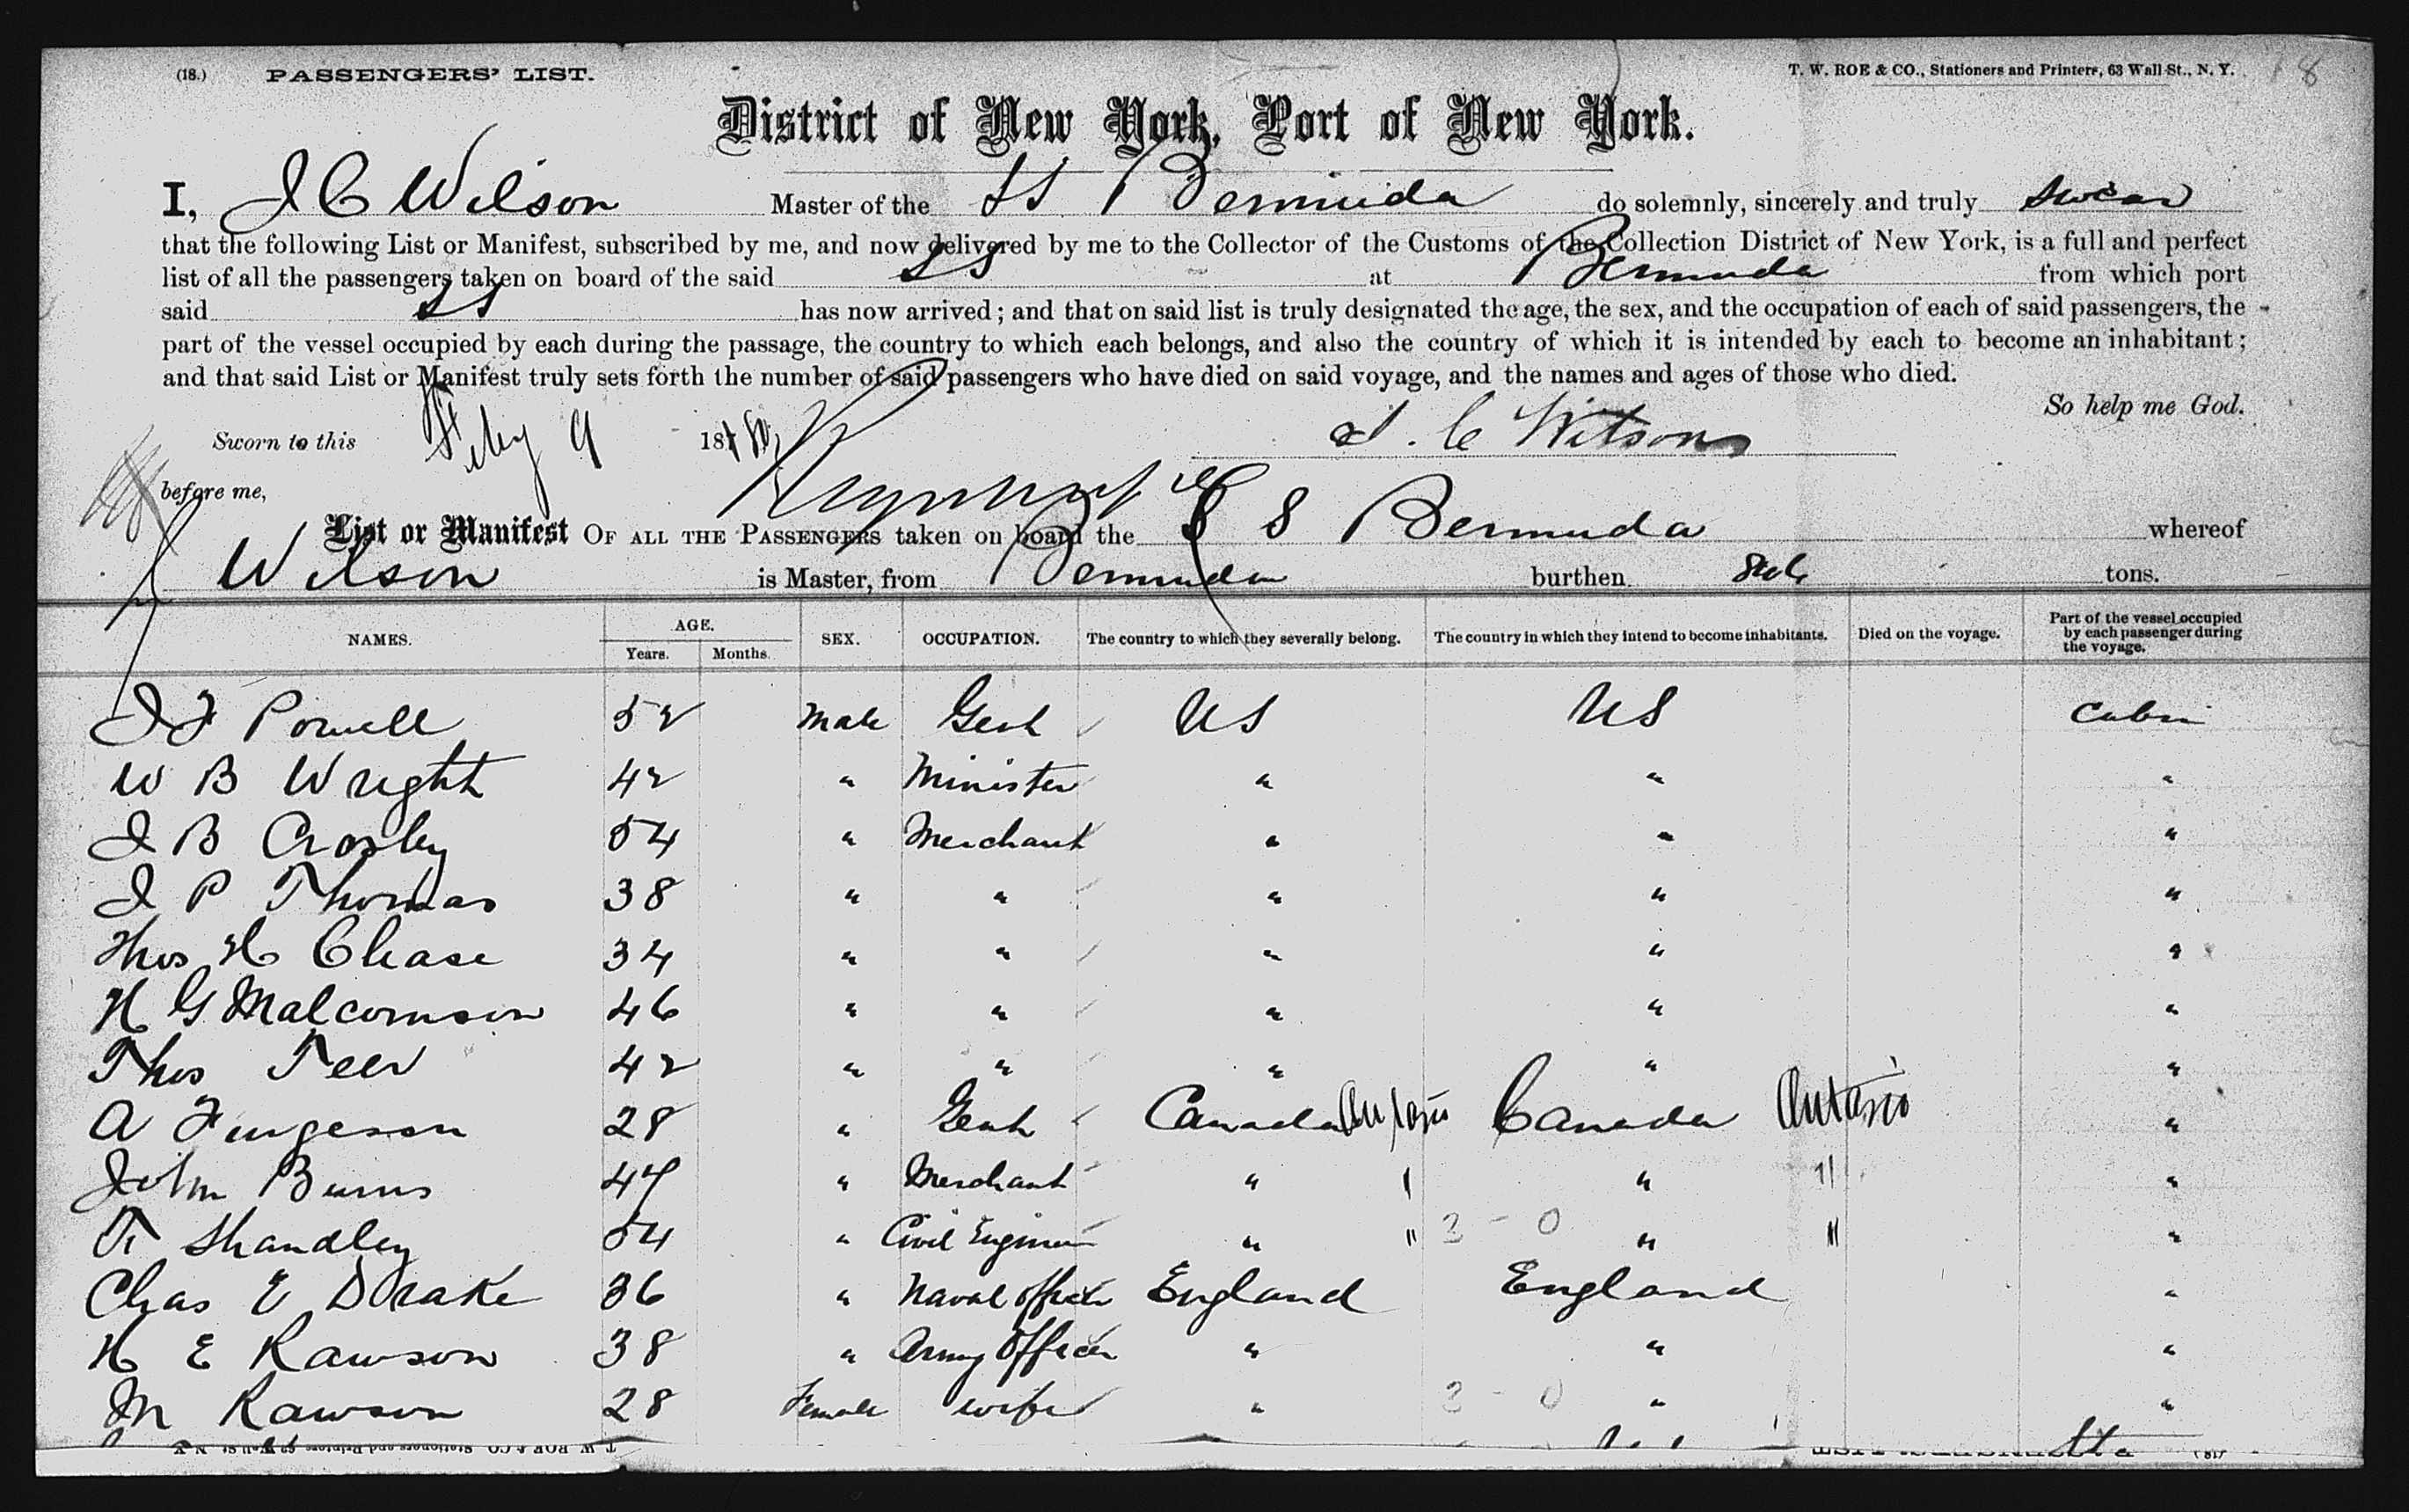 (18.) PASSENGERS' LIST. T. W. ROE & CO., Stationers and Printers, 63 Wall St., N. Y. 8
District of New York, Port of New York.
I, J C Wilson Master of the SS Bermuda do solemnly, sincerely and truly swear
that the following List or Manifest, subscribed by me, and now delivered by me to the Collector of the Customs of the Collection District of New York, is a full and perfect
list of all the passengers taken on board of the said SS at Bermuda from which port
said SS has now arrived; and that on said list is truly designated the age, the sex, and the occupation of each of said passengers, the
part of the vessel occupied by each during the passage, the country to which each belongs, and also the country of which it is intended by each to become an inhabitant;
and that said List or Manifest truly sets forth the number of said passengers who have died on said voyage, and the names and ages of those who died.
So help me God.
Sworn to this Feby 9 18 J. C Wilson
before me,
List or Manifest OF ALL THE PASSENGERS taken on board the S S Bermuda whereof
Wilson is Master, from Bermuda burthen tons.
NAMES. AGE. Years. Months. SEX. OCCUPATION. The country to which they severally belong. The country in which they intend to become inhabitants. Died on the voyage. Part of the vessel occupied by each passenger during the voyage.
J F Powell 52 Male Gent US US Cabin
W B Wright 42 " Minister " " "
J B Crosby 54 " Merchant " " "
J P Thomas 38 " " " " "
Thos H Chase 34 " " " " "
H G Malcomson 46 " " " " "
Thos Teer 42 " " " " "
A Furgeson 28 " Gent Canada Ontario Canada Ontario "
John Burns 47 " Merchant " " " "
T Shandley 54 " Civil Engineer " " " " "
Chas E Drake 36 " Naval Officer England England "
H E Rawson 38 " Army Officer " " "
M Rawson 28 Female wife " " "